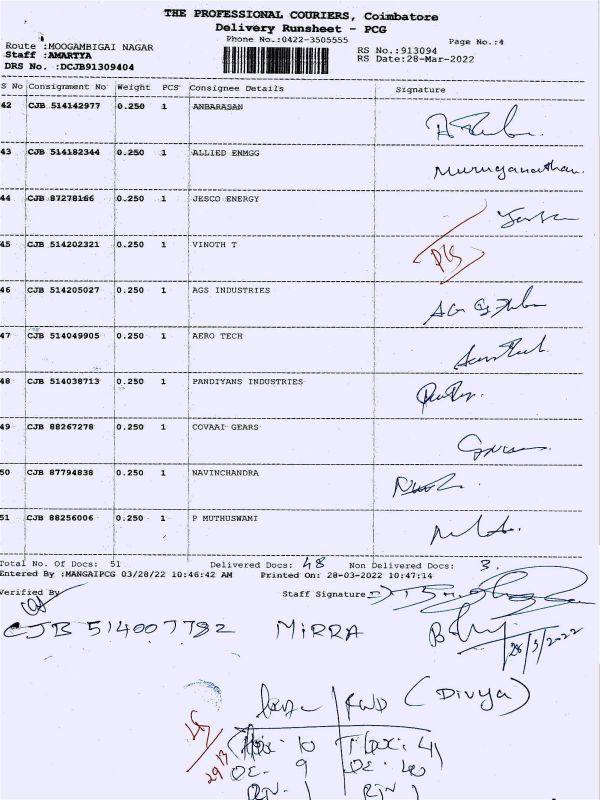 THE PROFESSIONAL COURIERS, Coimbatore
Delivery Runsheet - PCG
Phone No.:0422-3505555
Page No.:4
Route :MOOGAMBIGAI NAGAR
Staff :AMARTYA
DRS No. :DCJB91309404
RS No.:913094
RS Date:28-Mar-2022
S No Consignment No Weight PCS Consignee Details Signature
42 CJB 514142977 0.250 1 ANBARASAN
43 CJB 514182344 0.250 1 ALLIED ENMGG
Muruganathan.
44 CJB 87278166 0.250 1 JESCO ENERGY
45 CJB 514202321 0.250 1 VINOTH T
46 CJB 514205027 0.250 1 AGS INDUSTRIES
47 CJB 514049905 0.250 1 AERO TECH
48 CJB 514038713 0.250 1 PANDIYANS INDUSTRIES
49 CJB 88267278 0.250 1 COVAAI GEARS
50 CJB 87794838 0.250 1 NAVINCHANDRA
51 CJB 88256006 0.250 1 P MUTHUSWAMI
Total No. Of Docs: 51 Delivered Docs: 48 Non Delivered Docs: 3.
Entered By :MANGAIPCG 03/28/22 10:46:42 AM Printed On: 28-03-2022 10:47:14
Verified By Staff Signature
CJB 514007792 MIRRA
28/3/2022
(Divya)
10 41
29/3
OE- 9 OE: 40
1 1